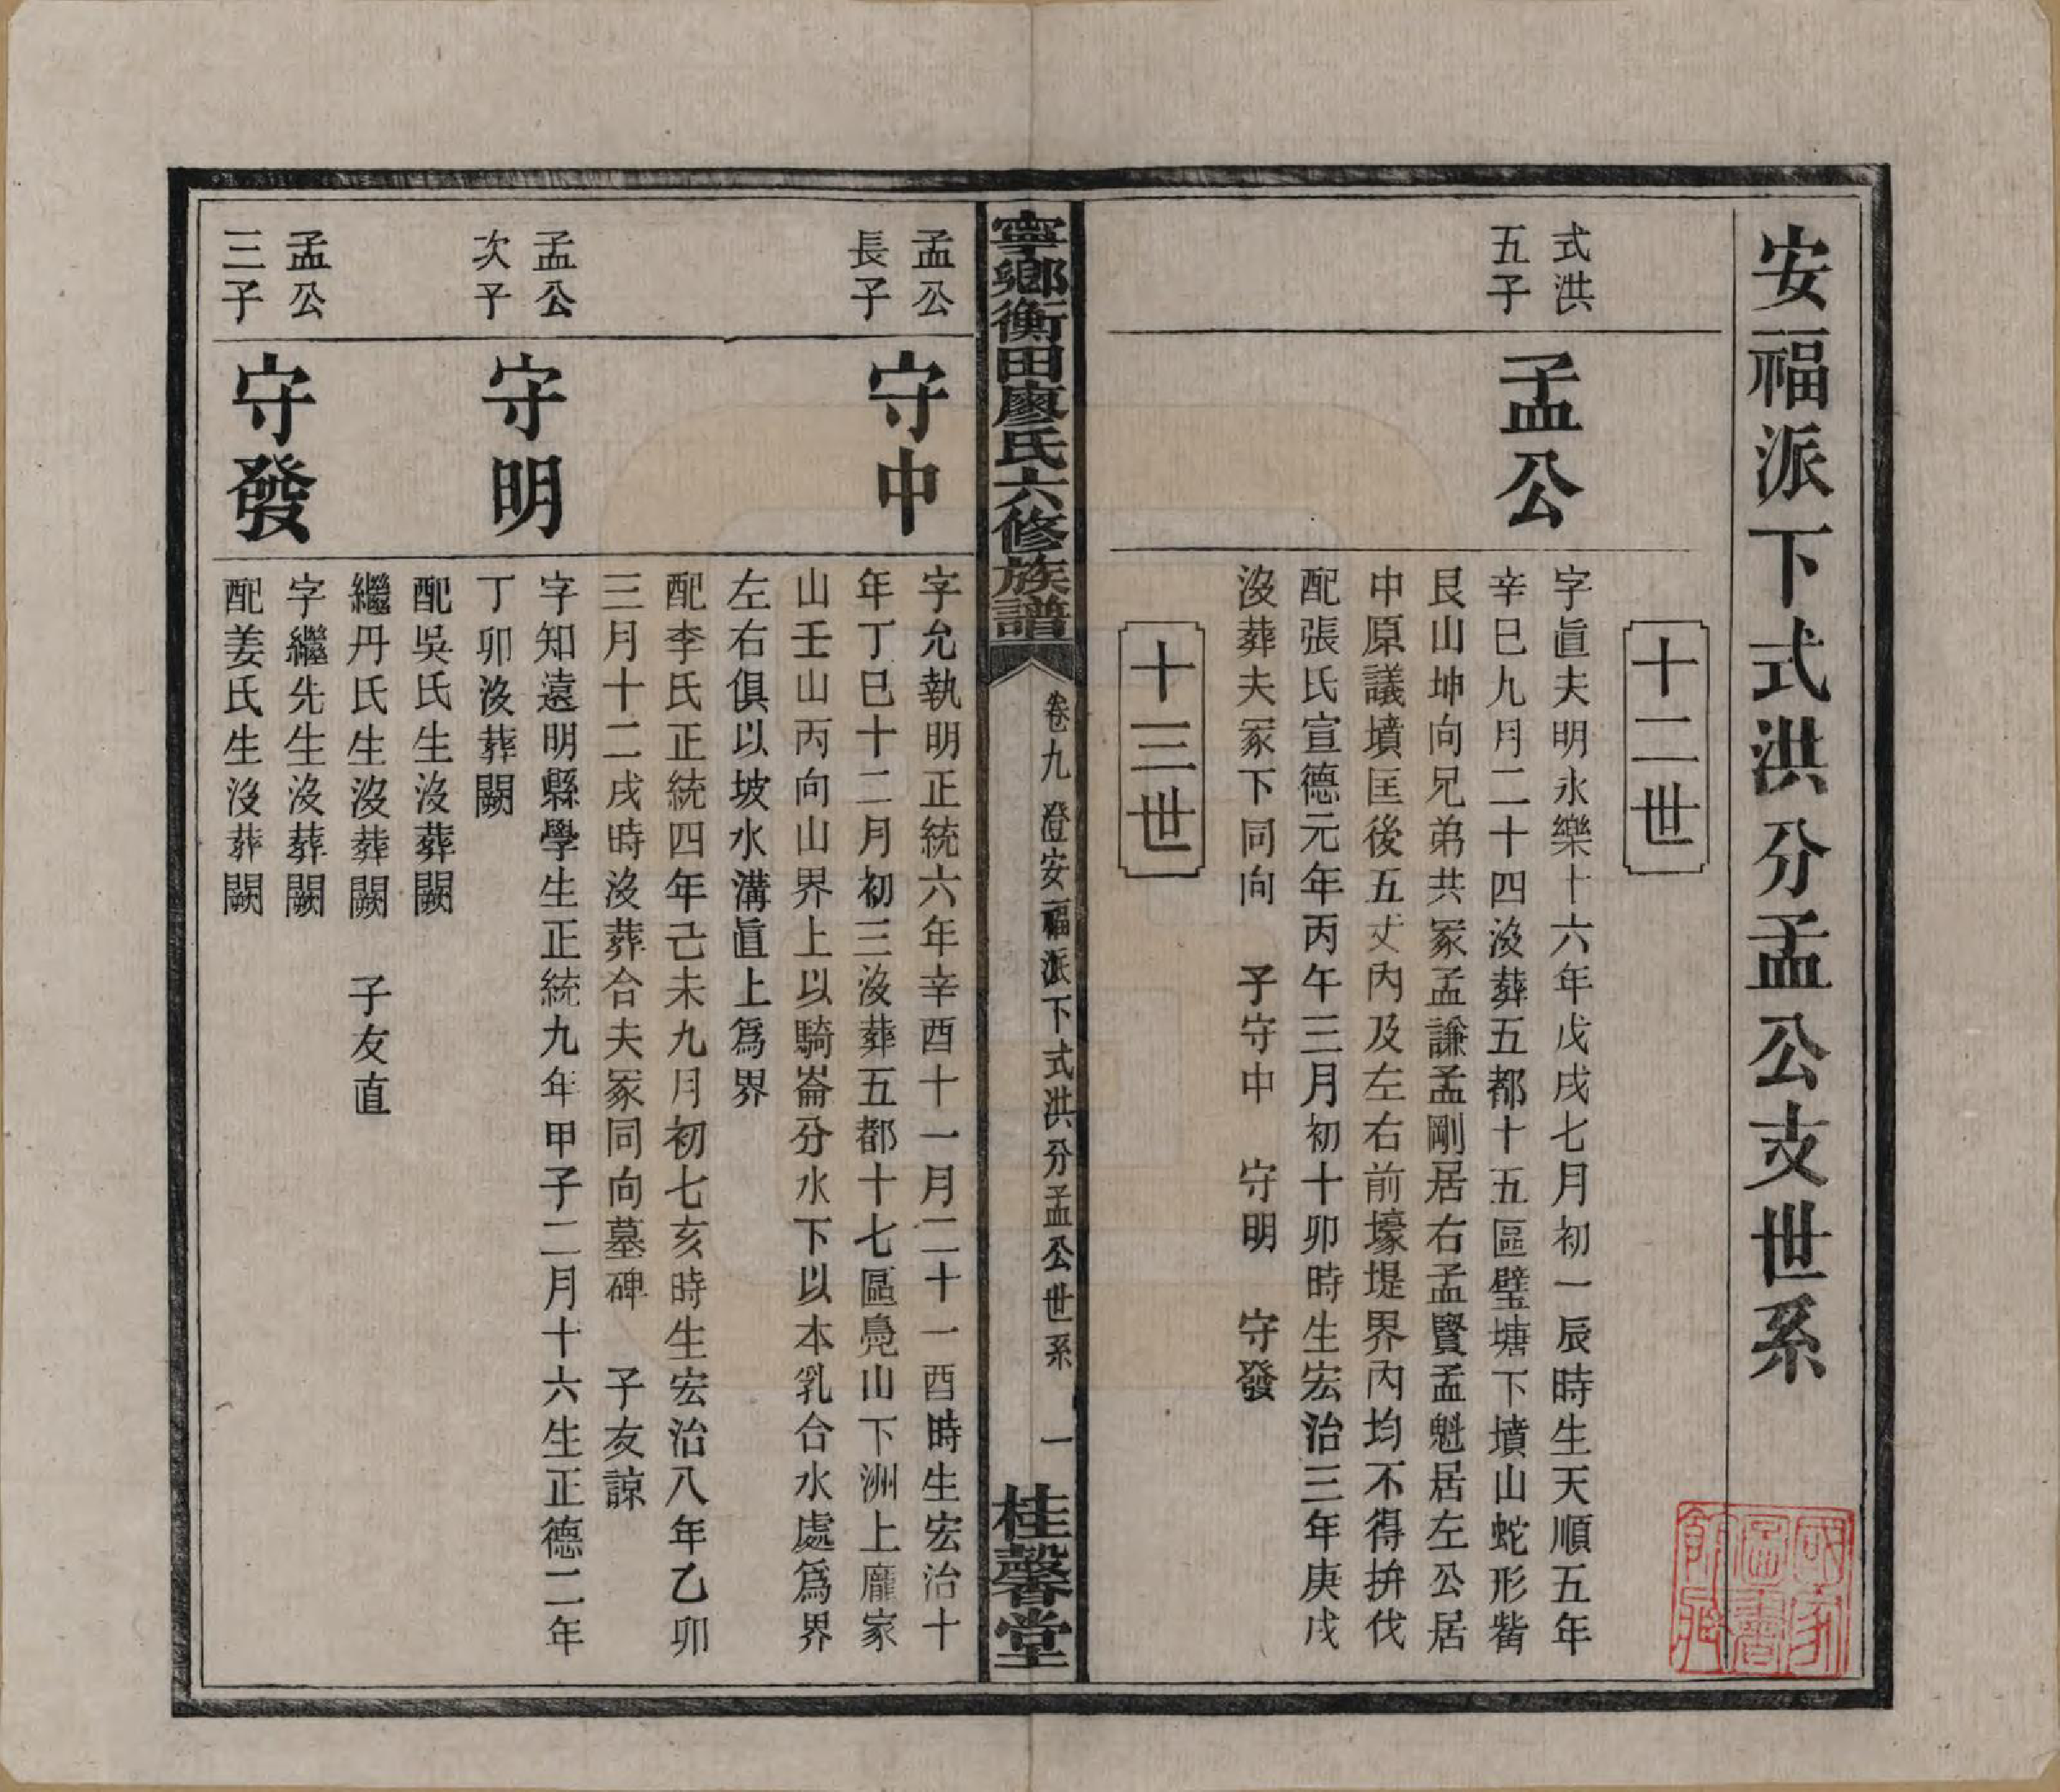 安福派下式洪分孟公支世系
十二世
式洪
五子
孟公
字眞夫明永樂十六年戊戌七月初一辰時生天順五年
辛巳九月二十四沒葬五都十五區璧塘下墳山蛇形
艮山坤向兄弟共冢孟謙孟剛居右孟賢孟魁居左公居
中原議墳匡後五丈內及左右前壕堤界內均不得拚伐
配張氏宣德元年丙午三月初十卯時生宏治三年庚戌
沒葬夫冢下同向 子守中 守明 守發
十三世
寧鄉衡田廖氏六修族譜
卷九 澄安福派下式洪分孟公世系 一
桂馨堂
孟公
長子
守中
字允執明正統六年辛酉十一月二十一酉時生宏治十
年丁巳十二月初三沒葬五都十七區鳧山下洲上龐家
山壬山丙向山界上以騎崙分水下以本乳合水處爲界
左右俱以坡水溝直上爲界
配李氏正統四年己未九月初七亥時生宏治八年乙卯
三月十二戌時沒葬合夫冢同向墓碑 子友諒
孟公
次子
守明
字知遠明縣學生正統九年甲子二月十六生正德二年
丁卯沒葬闕
配吳氏生沒葬闕
繼丹氏生沒葬闕 子友直
孟公
三子
守發
字繼先生沒葬闕
配姜氏生沒葬闕
國家圖書館藏